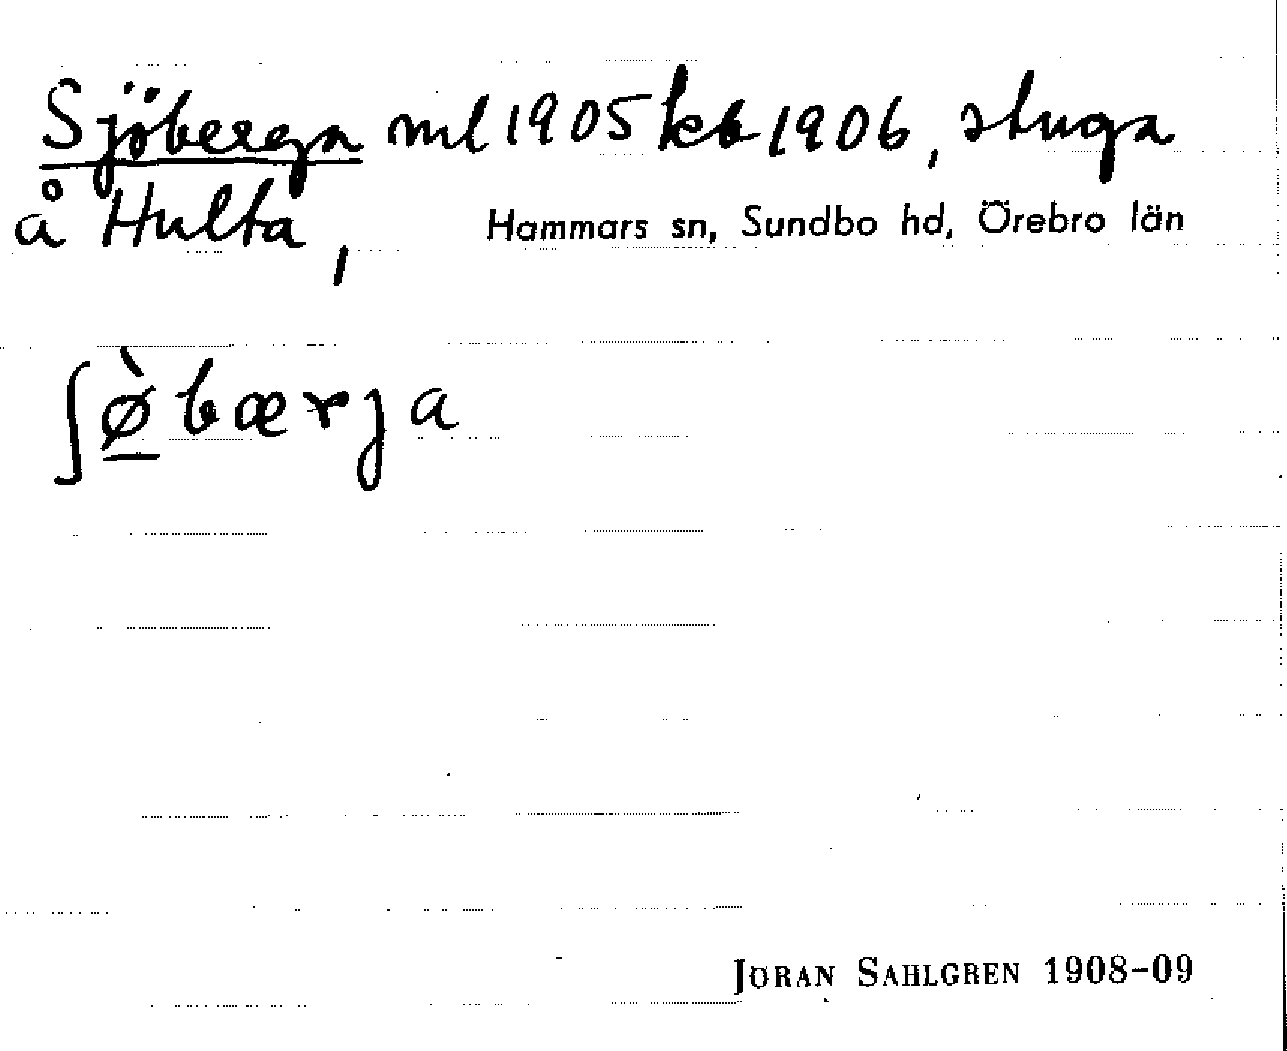 Sjöberga ml 1905 kb 1906, stuga
å Hulta, Hammars sn, Sundbo hd, Örebro län
ʃø̀bærja
JÖRAN SAHLGREN 1908-09